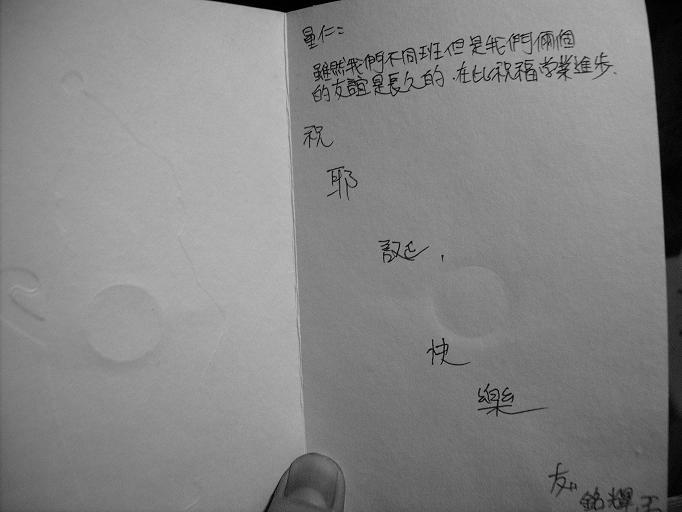 量仁:
雖然我們不同班但是我們倆個
的友誼是長久的.在此祝福学業進步.
祝
耶
誕,
快
樂
友 銘輝